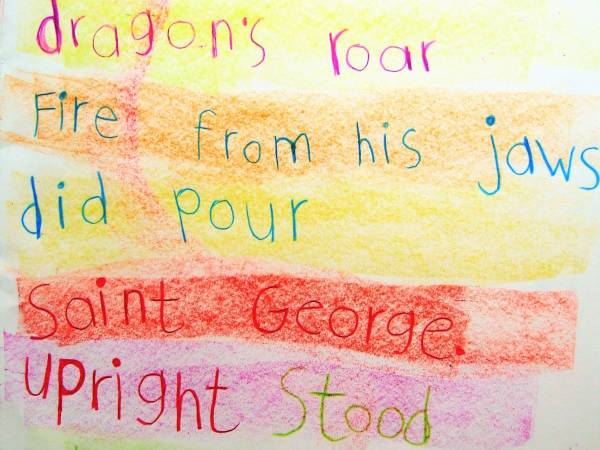 dragon's roar
Fire from his jaws
did pour
Saint George.
upright Stood